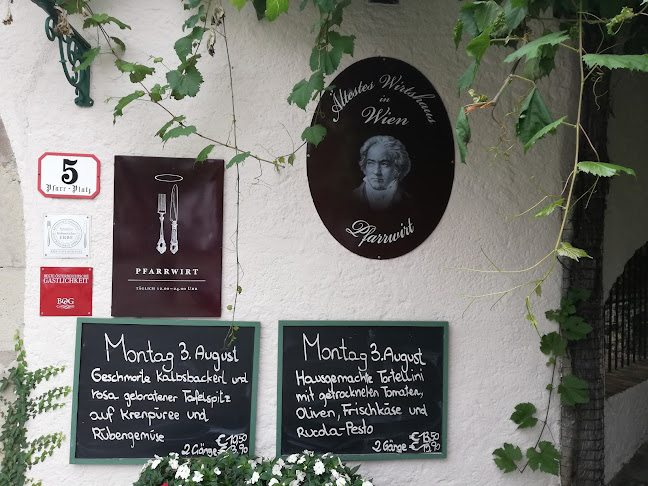 Ältestes Wirtshaus
in
Wien
Pfarrwirt
5
Pfarr-Platz
PFARRWIRT
TÄGLICH 12.00-24.00 UHR
GASTLICHKEIT
BÖG
Montag 3. August
Geschmorte Kalbsbackerl und
rosa gebratener Tafelspitz
auf Krenpüree und
Rübengemüse
2 Gänge
Montag 3. August
Hausgemachte Tortellini
mit getrockneten Tomaten,
Oliven, Frischkäse und
Rucola-Pesto
2 Gänge